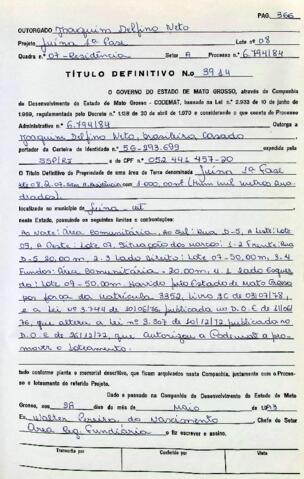 PAG. 366
OUTORGADO Joaquim Delfino Neto
Projeto Juina 1ª Fase Lote nº 08
Quadra nº 07-Residência Setor A Processo nº 6.794/84
TÍTULO DEFINITIVO N.o 3914
O GOVERNO DO ESTADO DE MATO GROSSO, através da Companhia
de Desenvolvimento do Estado de Mato Grosso - CODEMAT, baseado na Lei nº 2.933 de 10 de junho
de 1969, regulamentada pelo Decreto nº 1.128 de 30 de abril de 1970 e considerando o que consta do Processo
Administrativo nº 6.794/84 Outorga a
Joaquim Delfino Neto, brasileiro casado
portador da Carteira de Identidade nº 5G-293.699 expedida pela
SSP/RJ e do CPF nº 052 441 457-20
O Título Definitivo de Propriedade de uma área de Terra denominada Juina 1ª Fase
lote 08, Q. 07, Residência com 1.000,00m² (Hum mil metros Qua-
drados).
localizado no município de Juina-MT
neste Estado, possuindo os seguintes limites e confrontações:
Ao Norte: Área Comunitária, Ao Sul: Rua D-5, A Leste: Lote
09, A Oeste: Lote 07, Situação dos marcos: 1-2 Frente Rua
D-5 20,00m, 2-3 Lado Direito: Lote 07-50,00m, 3-4
Fundos: Área Comunitária-20,00m, 4-1 Lado Esquer-
do: Lote 09-50,00m. Havido pelo Estado de Mato Grosso
por força da matrícula 3352, Livro 3C de 03/07/78,
e a Lei nº 3.744 de 10/06/76, publicada no D.O.E de 11/06/
76, que altera a lei nº 3.307 de 10/12/72, publicada no
D.O.E de 26/12/72, que autorizou a Codemat a pro-
mover o Loteamento.
tudo conforme planta e memorial descritivo, que ficam arquivados nesta Companhia, juntamente com o Proces-
so e loteamento do referido Projeto.
Dado e passado na Companhia de Desenvolvimento do Estado de Mato
Grosso, aos 28 dias do mês de Maio de 1993
Eu, Walter Pereira do Nascimento Chefe do Setor
Área Reg. Fundiária o fiz escrever e assino.
Transcrito por Conferido por Visto